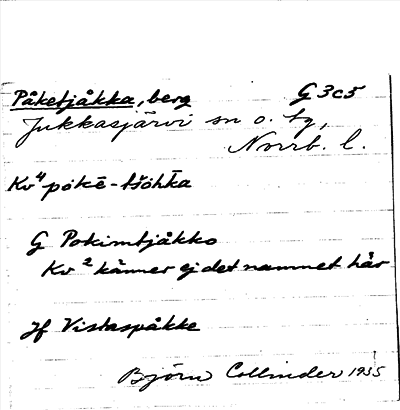 Påketjåkka, berg G 3c5
Jukkasjärvi sn o. tg,
Norrb. l.
Kv⁴ pökē-tšöhka
G Pokimtjåkko
Kv² känner ej det namnet här
Jf Vistaspåkke
Björn Collinder 1935